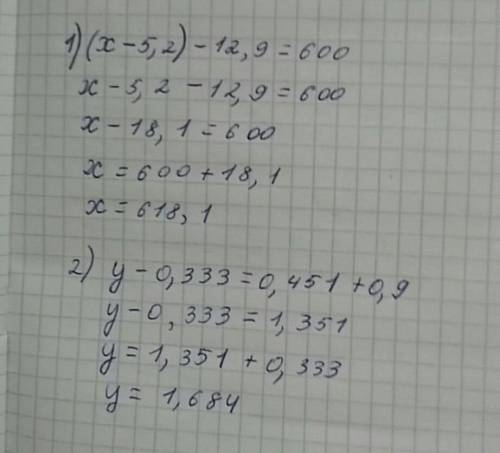 1) (x-5,2)-12,9=600
x-5,2-12,9=600
x-18,1=600
x=600+18,1
x=618,1
2) y-0,333=0,451+0,9
y-0,333=1,351
y=1,351+0,333
y=1,684